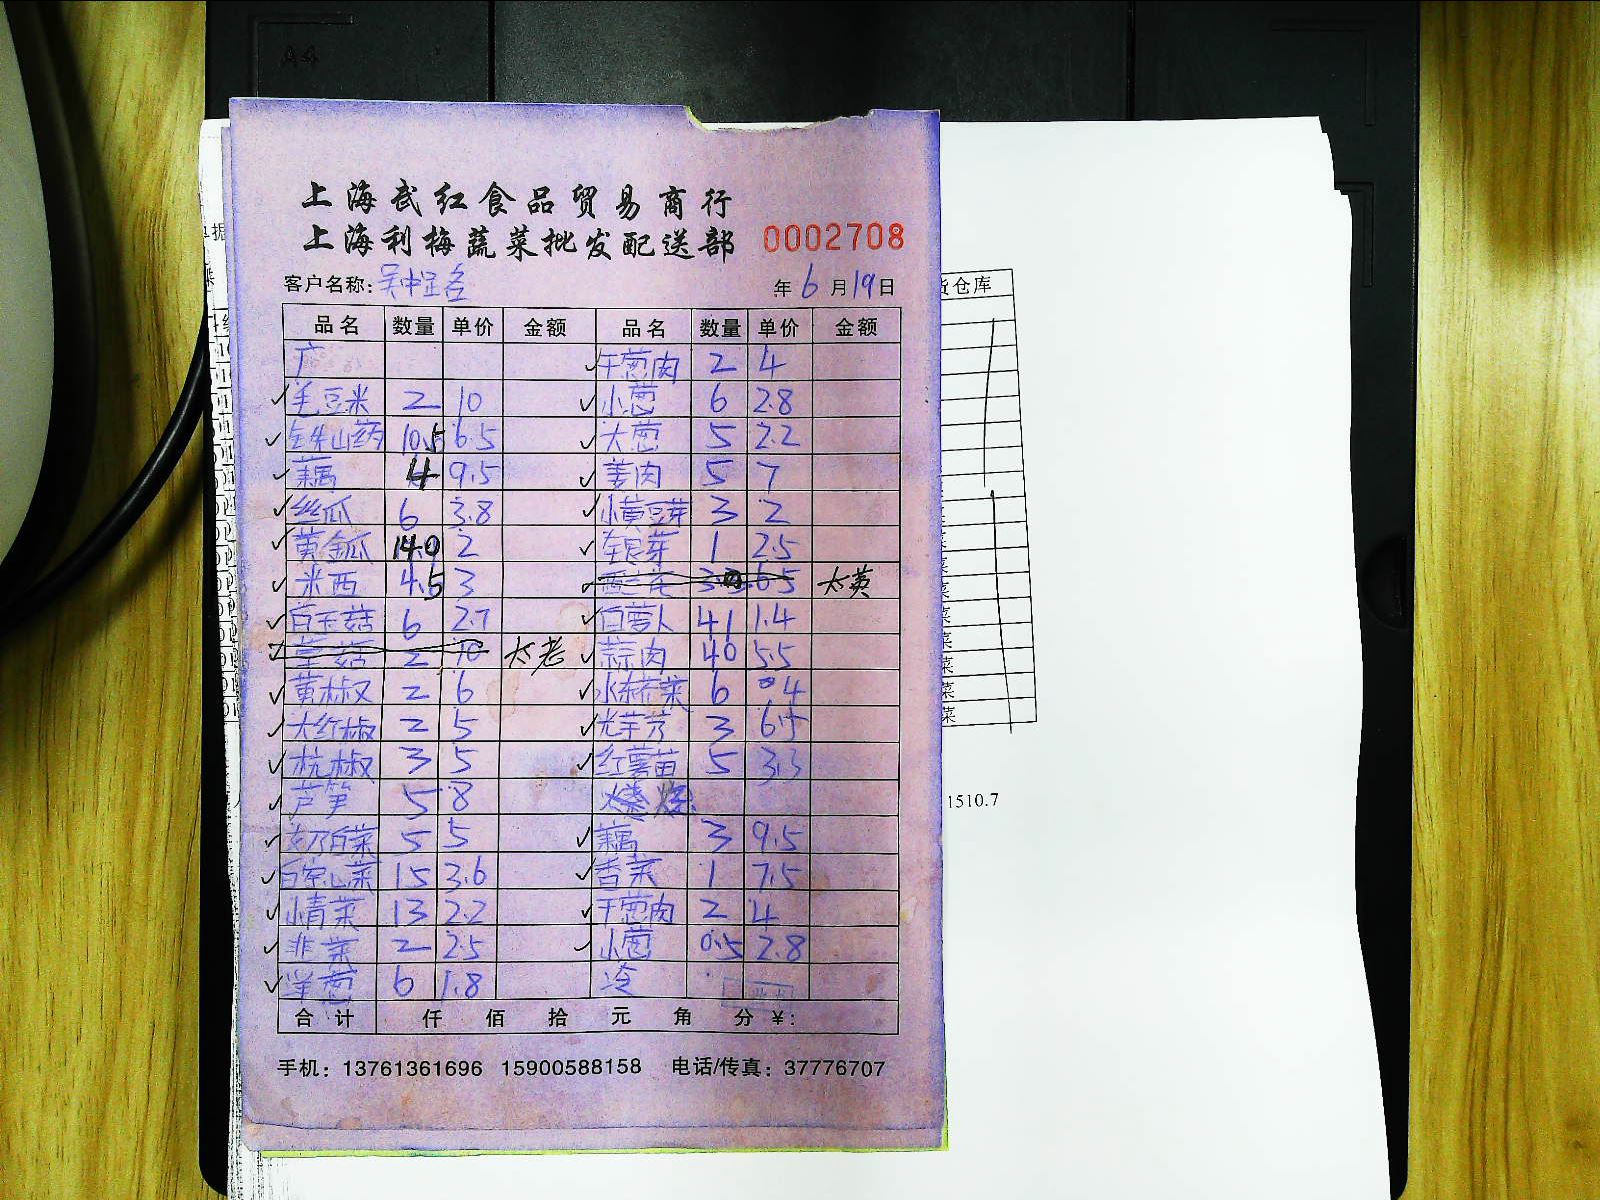 A4
上海武红食品贸易商行
上海利梅蔬菜批发配送部 0002708
客户名称: 年 6 月 19 日
品名 数量 单价 金额 品名 数量 单价 金额
广 干葱肉 2 4
毛豆米 2 10 小葱 6 2.8
铁山药 10.5 6.5 大葱 5 2.2
藕 4 9.5 姜肉 5 7
丝瓜 6 3.8 小黄豆芽 3 2
黄金瓜 14.9 2 银芽 1 2.5
米西 4.5 3 6.5 太黄
白玉菇 6 2.7 白萝卜 41 1.4
草菇 2 10 太老 蒜肉 40 5.5
黄椒 2 6 水 菜 6 4
大红椒 2 5 光芋艿 3 6.5
杭椒 3 5 红薯苗 5 3.3
芦笋 5 8
奶白菜 5 5 藕 3 9.5
白空心菜 15 3.6 香菜 1 7.5
小青菜 13 2.2 干葱肉 2 4
韭菜 2 2.5 小葱 0.5 2.8
洋葱 6 1.8 冷
合计 仟 佰 拾 元 角 分 ¥:
手机: 13761361696 15900588158 电话/传真: 37776707
货仓库
菜
菜
菜
1510.7